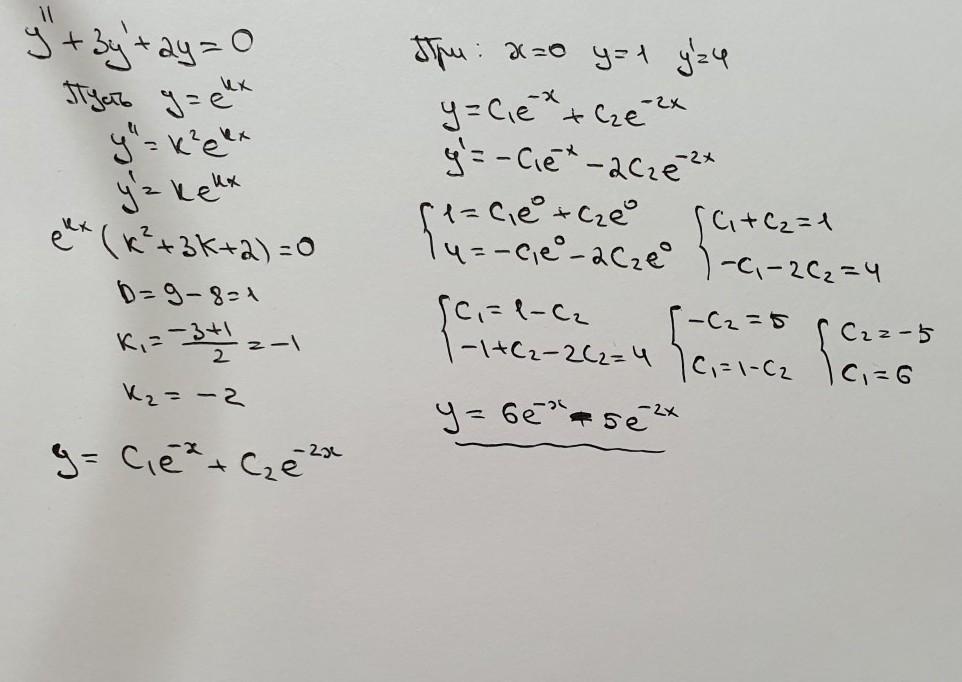 y'' + 3y' + 2y = 0
Пусть y = e^{kx}
y'' = k²e^{kx}
y' = ke^{kx}
e^{kx} (k² + 3k + 2) = 0
D = 9 - 8 = 1
k₁ = \frac{-3+1}{2} = -1
k₂ = -2
y = C₁e^{-x} + C₂e^{-2x}
При: x = 0 y = 1 y' = 4
y = C₁e^{-x} + C₂e^{-2x}
y' = -C₁e^{-x} - 2C₂e^{-2x}
{ 1 = C₁e⁰ + C₂e⁰ { C₁ + C₂ = 1
{ 4 = -C₁e⁰ - 2C₂e⁰ { -C₁ - 2C₂ = 4
{ C₁ = 1 - C₂ { -C₂ = 5 { C₂ = -5
{ -1 + C₂ - 2C₂ = 4 { C₁ = 1 - C₂ { C₁ = 6
y = 6e^{-x} - 5e^{-2x}